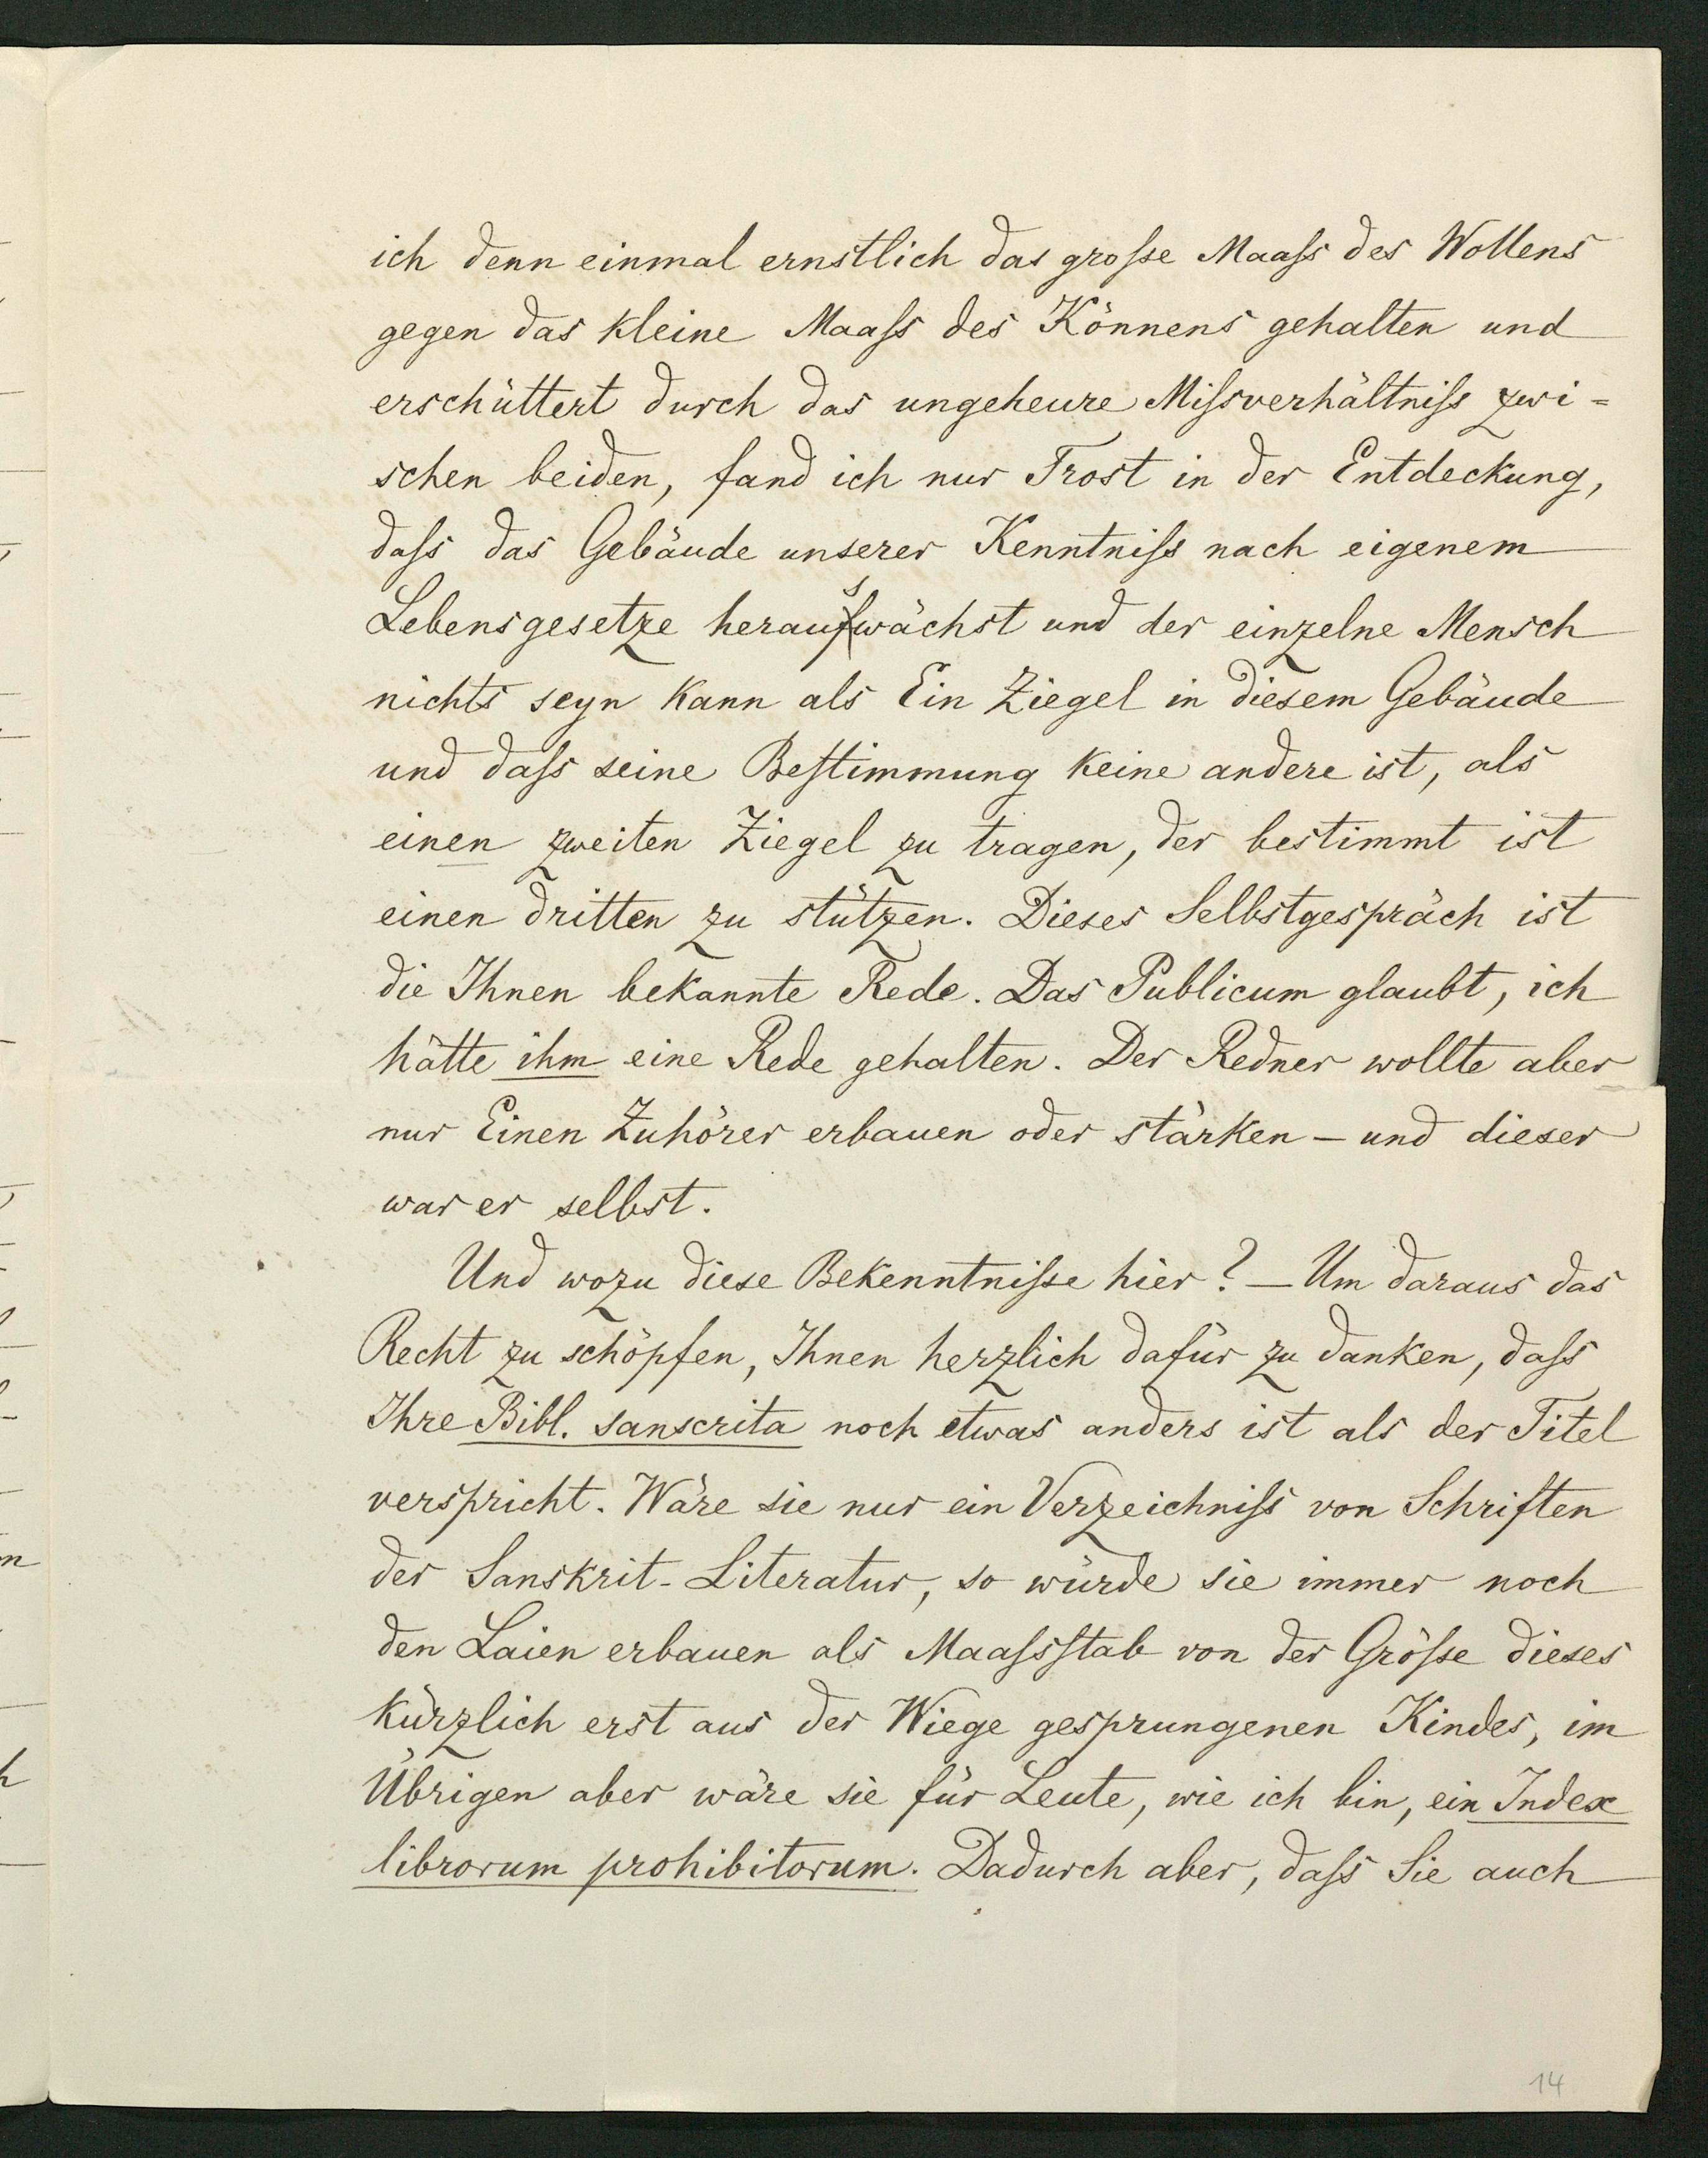 ich denn einmal ernstlich das große Maaß des Wollens
gegen das kleine Maaß des Könnens gehalten und
erschüttert durch das ungeheure Mißverhältniß zwi=
schen beiden, fand ich nur Trost in der Entdeckung,
daß das Gebäude unserer Kenntniß nach eigenem
Lebensgesetze herauswächst und der einzelne Mensch
nichts seyn kann als Ein Ziegel in diesem Gebäude
und daß seine Bestimmung keine andere ist, als
einen zweiten Ziegel zu tragen, der bestimmt ist
einen dritten zu stützen. Dieses Selbstgespräch ist
die Ihnen bekannte Rede. Das Publicum glaubt, ich
hätte ihm eine Rede gehalten. Der Redner wollte aber
nur Einen Zuhörer erbauen oder stärken – und dieser
war er selbst.
Und wozu diese Bekenntniße hier? – Um daraus das
Recht zu schöpfen, Ihnen herzlich dafür zu danken, daß
Ihre Bibl. sanscrita noch etwas anders ist als der Titel
verspricht. Wäre sie nur ein Verzeichniß von Schriften
der Sanskrit-Literatur, so würde sie immer noch
den Laien erbauen als Maaßstab von der Größe dieses
kürzlich erst aus der Wiege gesprungenen Kindes, im
Übrigen aber wäre sie für Leute, wie ich bin, ein Index
librorum prohibitorum. Dadurch aber, daß Sie auch
14